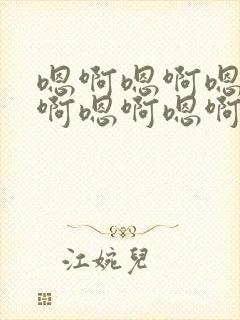 嗯啊嗯啊嗯
啊嗯啊嗯啊
江婉兒